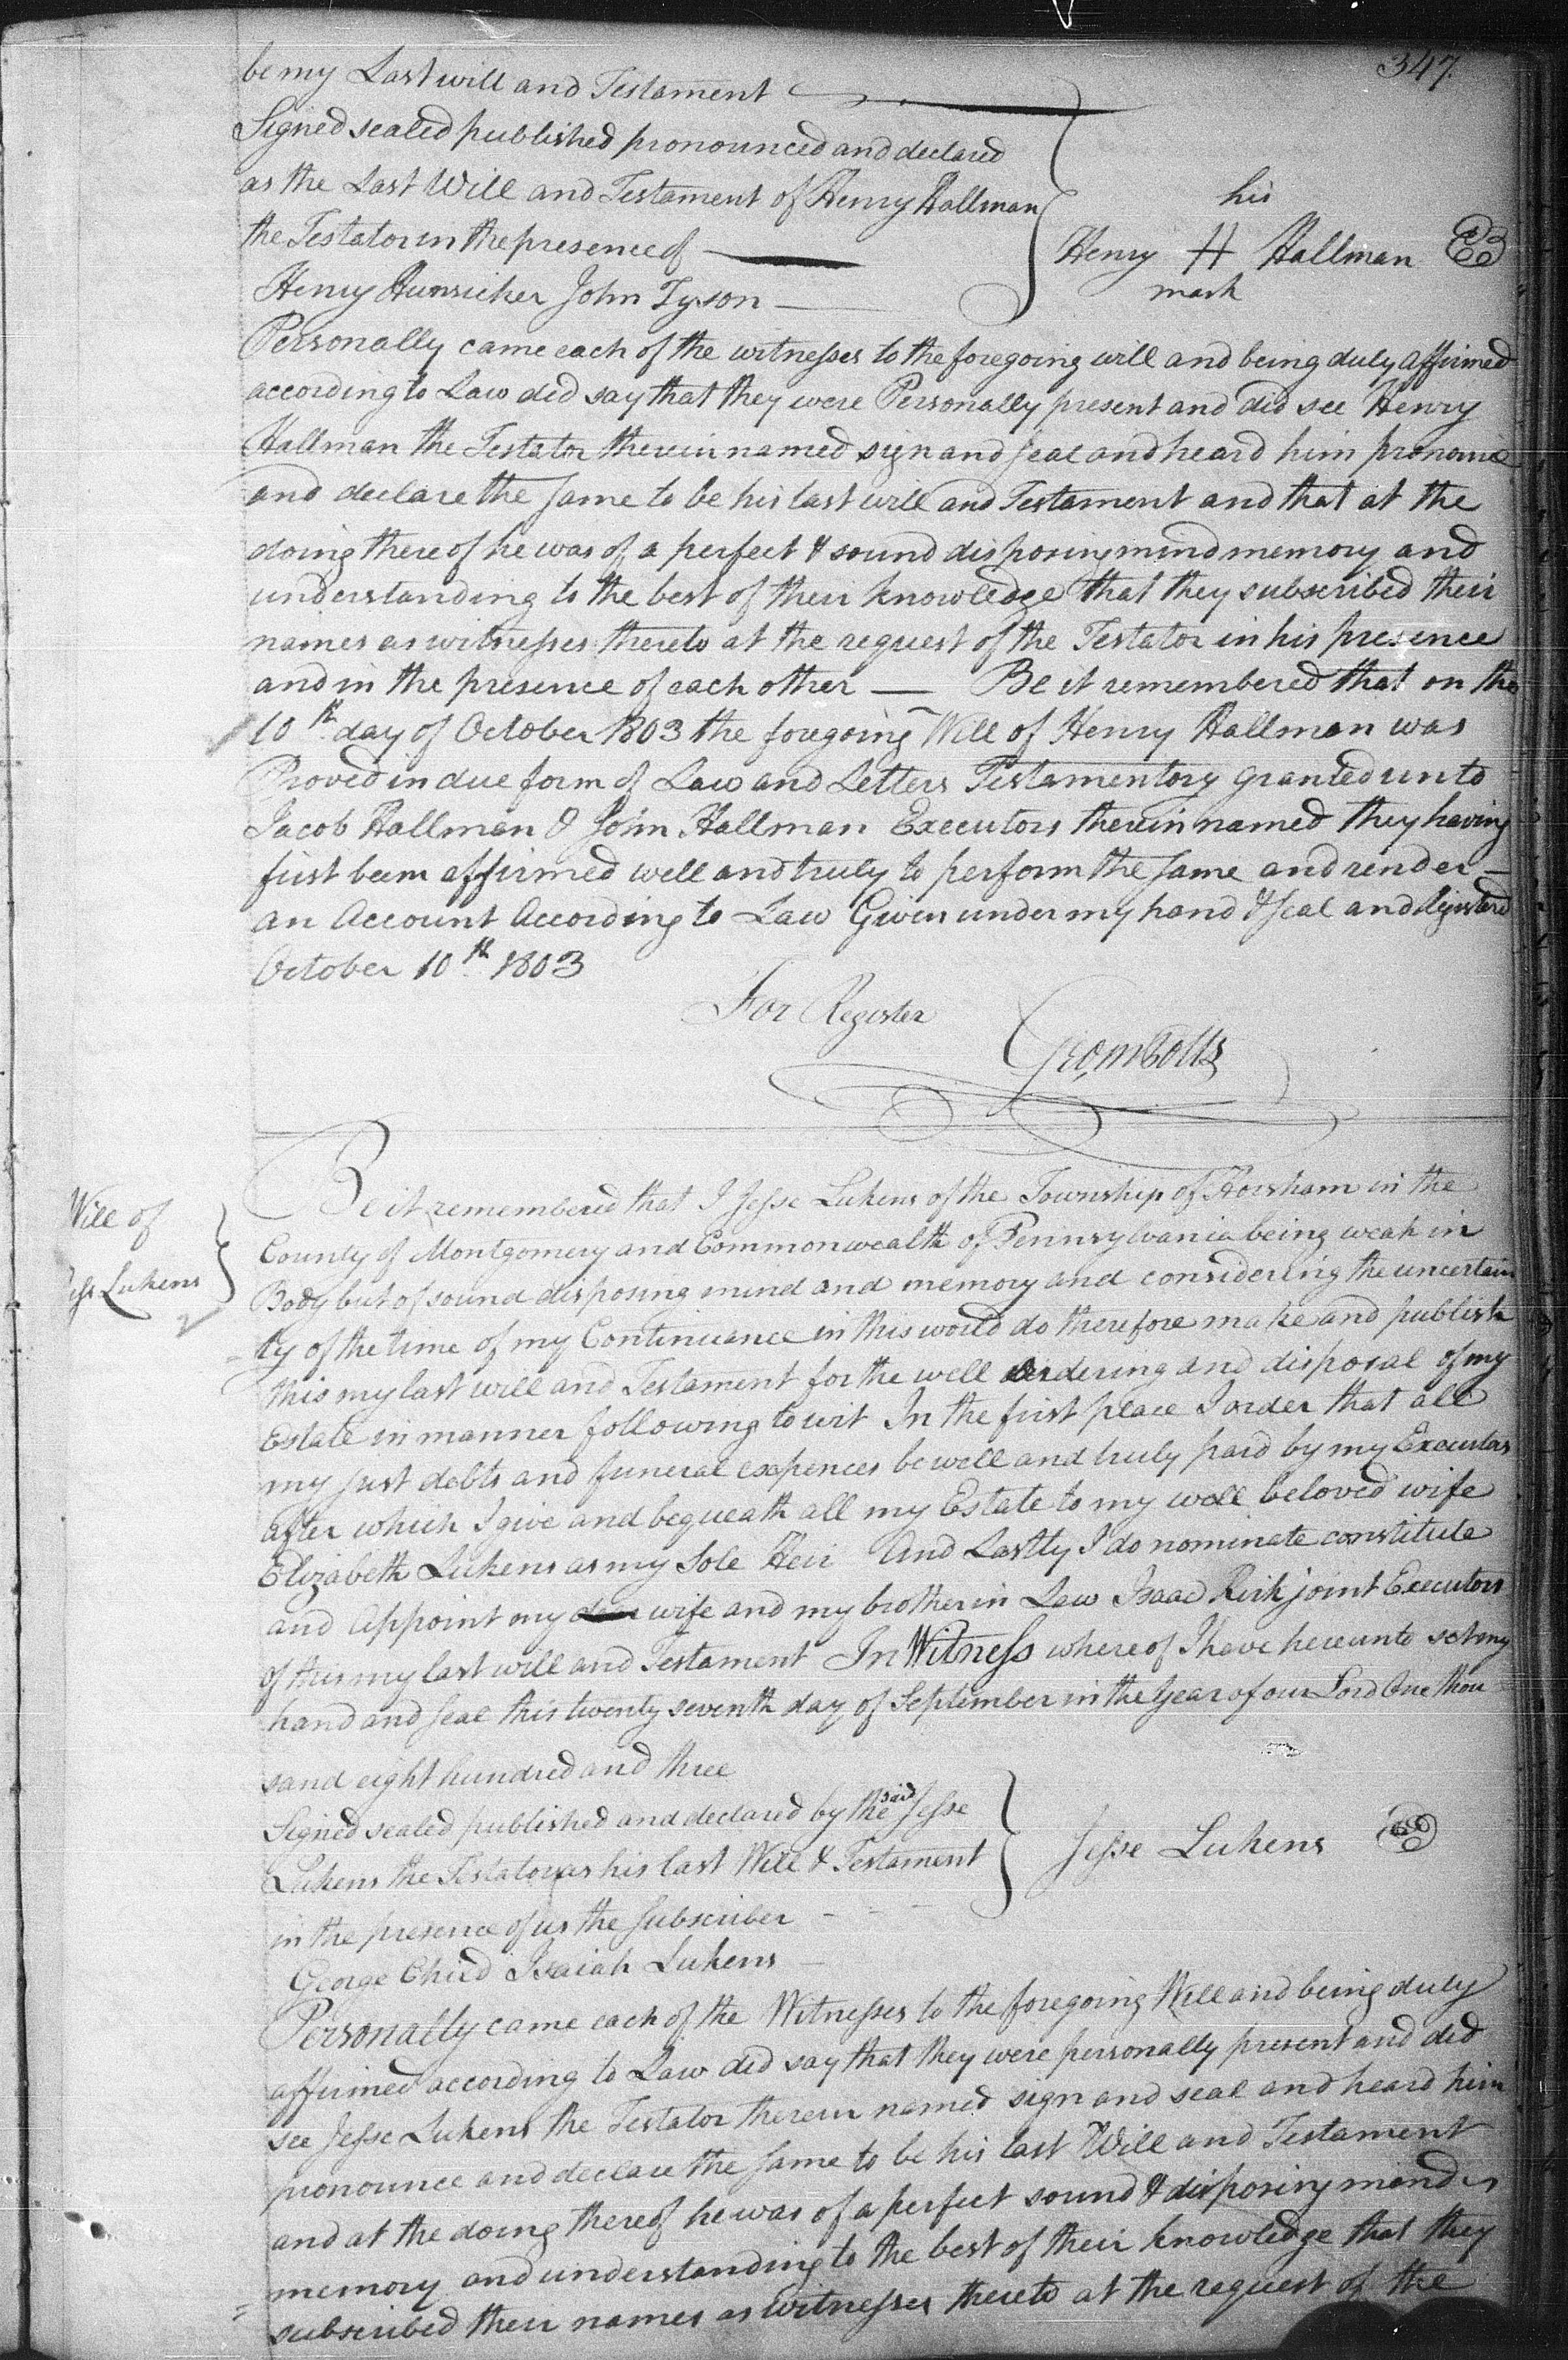 347.
be my Last will and Testament
Signed sealed published pronounced and declared
as the Last Will and Testament of Henry Hallman
the Testator in the presence of
his
Henry H Hallman
mark
Henry Hunsicker John Tyson
Personally came each of the witnesses to the foregoing will and being duly affirmed
according to Law did say that they were Personally present and did see Henry
Hallman the Testator therein named sign and seal and heard him pronounce
and declare the same to be his last will and Testament and that at the
doing thereof he was of a perfect & sound disposing mind memory and
understanding to the best of their knowledge that they subscribed their
names as witnesses thereto at the request of the Testator in his presence
and in the presence of each other — Be it remembered that on the
10th day of October 1803 the foregoing Will of Henry Hallman was
Proved in due form of Law and Letters Testamentory granted unto
Jacob Hallman & John Hallman Executors therein named they having
first been affirmed well and truly to perform the same and render
an Account According to Law Given under my hand & seal and Registered
October 10th 1803
For Register
Will of
Lukens
Be it remembered that I Jesse Lukens of the Township of Horsham in the
County of Montgomery and Commonwealth of Pennsylvania being weak in
Body but of sound disposing mind and memory and considering the uncertain
=ty of the time of my Continuance in this world do therefore make and publish
this my last will and Testament for the well ordering and disposal of my
Estate in manner following to wit In the first place I order that all
my just debts and funeral expences be well and truly paid by my Executors
after which I give and bequeath all my Estate to my well beloved wife
Elizabeth Lukens as my Sole Heir And Lastly I do nominate constitute
and Appoint my wife and my brother in Law Isaac Kirk joint Executors
of this my last will and Testament In Witness whereof I have hereunto set my
hand and seal this twenty seventh day of September in the Year of our Lord One thou
sand eight hundred and three
Signed sealed published and declared by the said Jesse
Lukens the Testator as his last Will & Testament
in the presence of us the Subscriber
Jesse Lukens
George Child Isaiah Lukens
Personally came each of the Witnesses to the foregoing Will and being duly
affirmed according to Law did say that they were personally present and did
see Jesse Lukens the Testator therein named sign and seal and heard him
pronounce and declare the same to be his last Will and Testament
and at the doing thereof he was of a perfect sound & disposing mind
memory and understanding to the best of their knowledge that they
subscribed their names as Witnesses thereto at the request of the